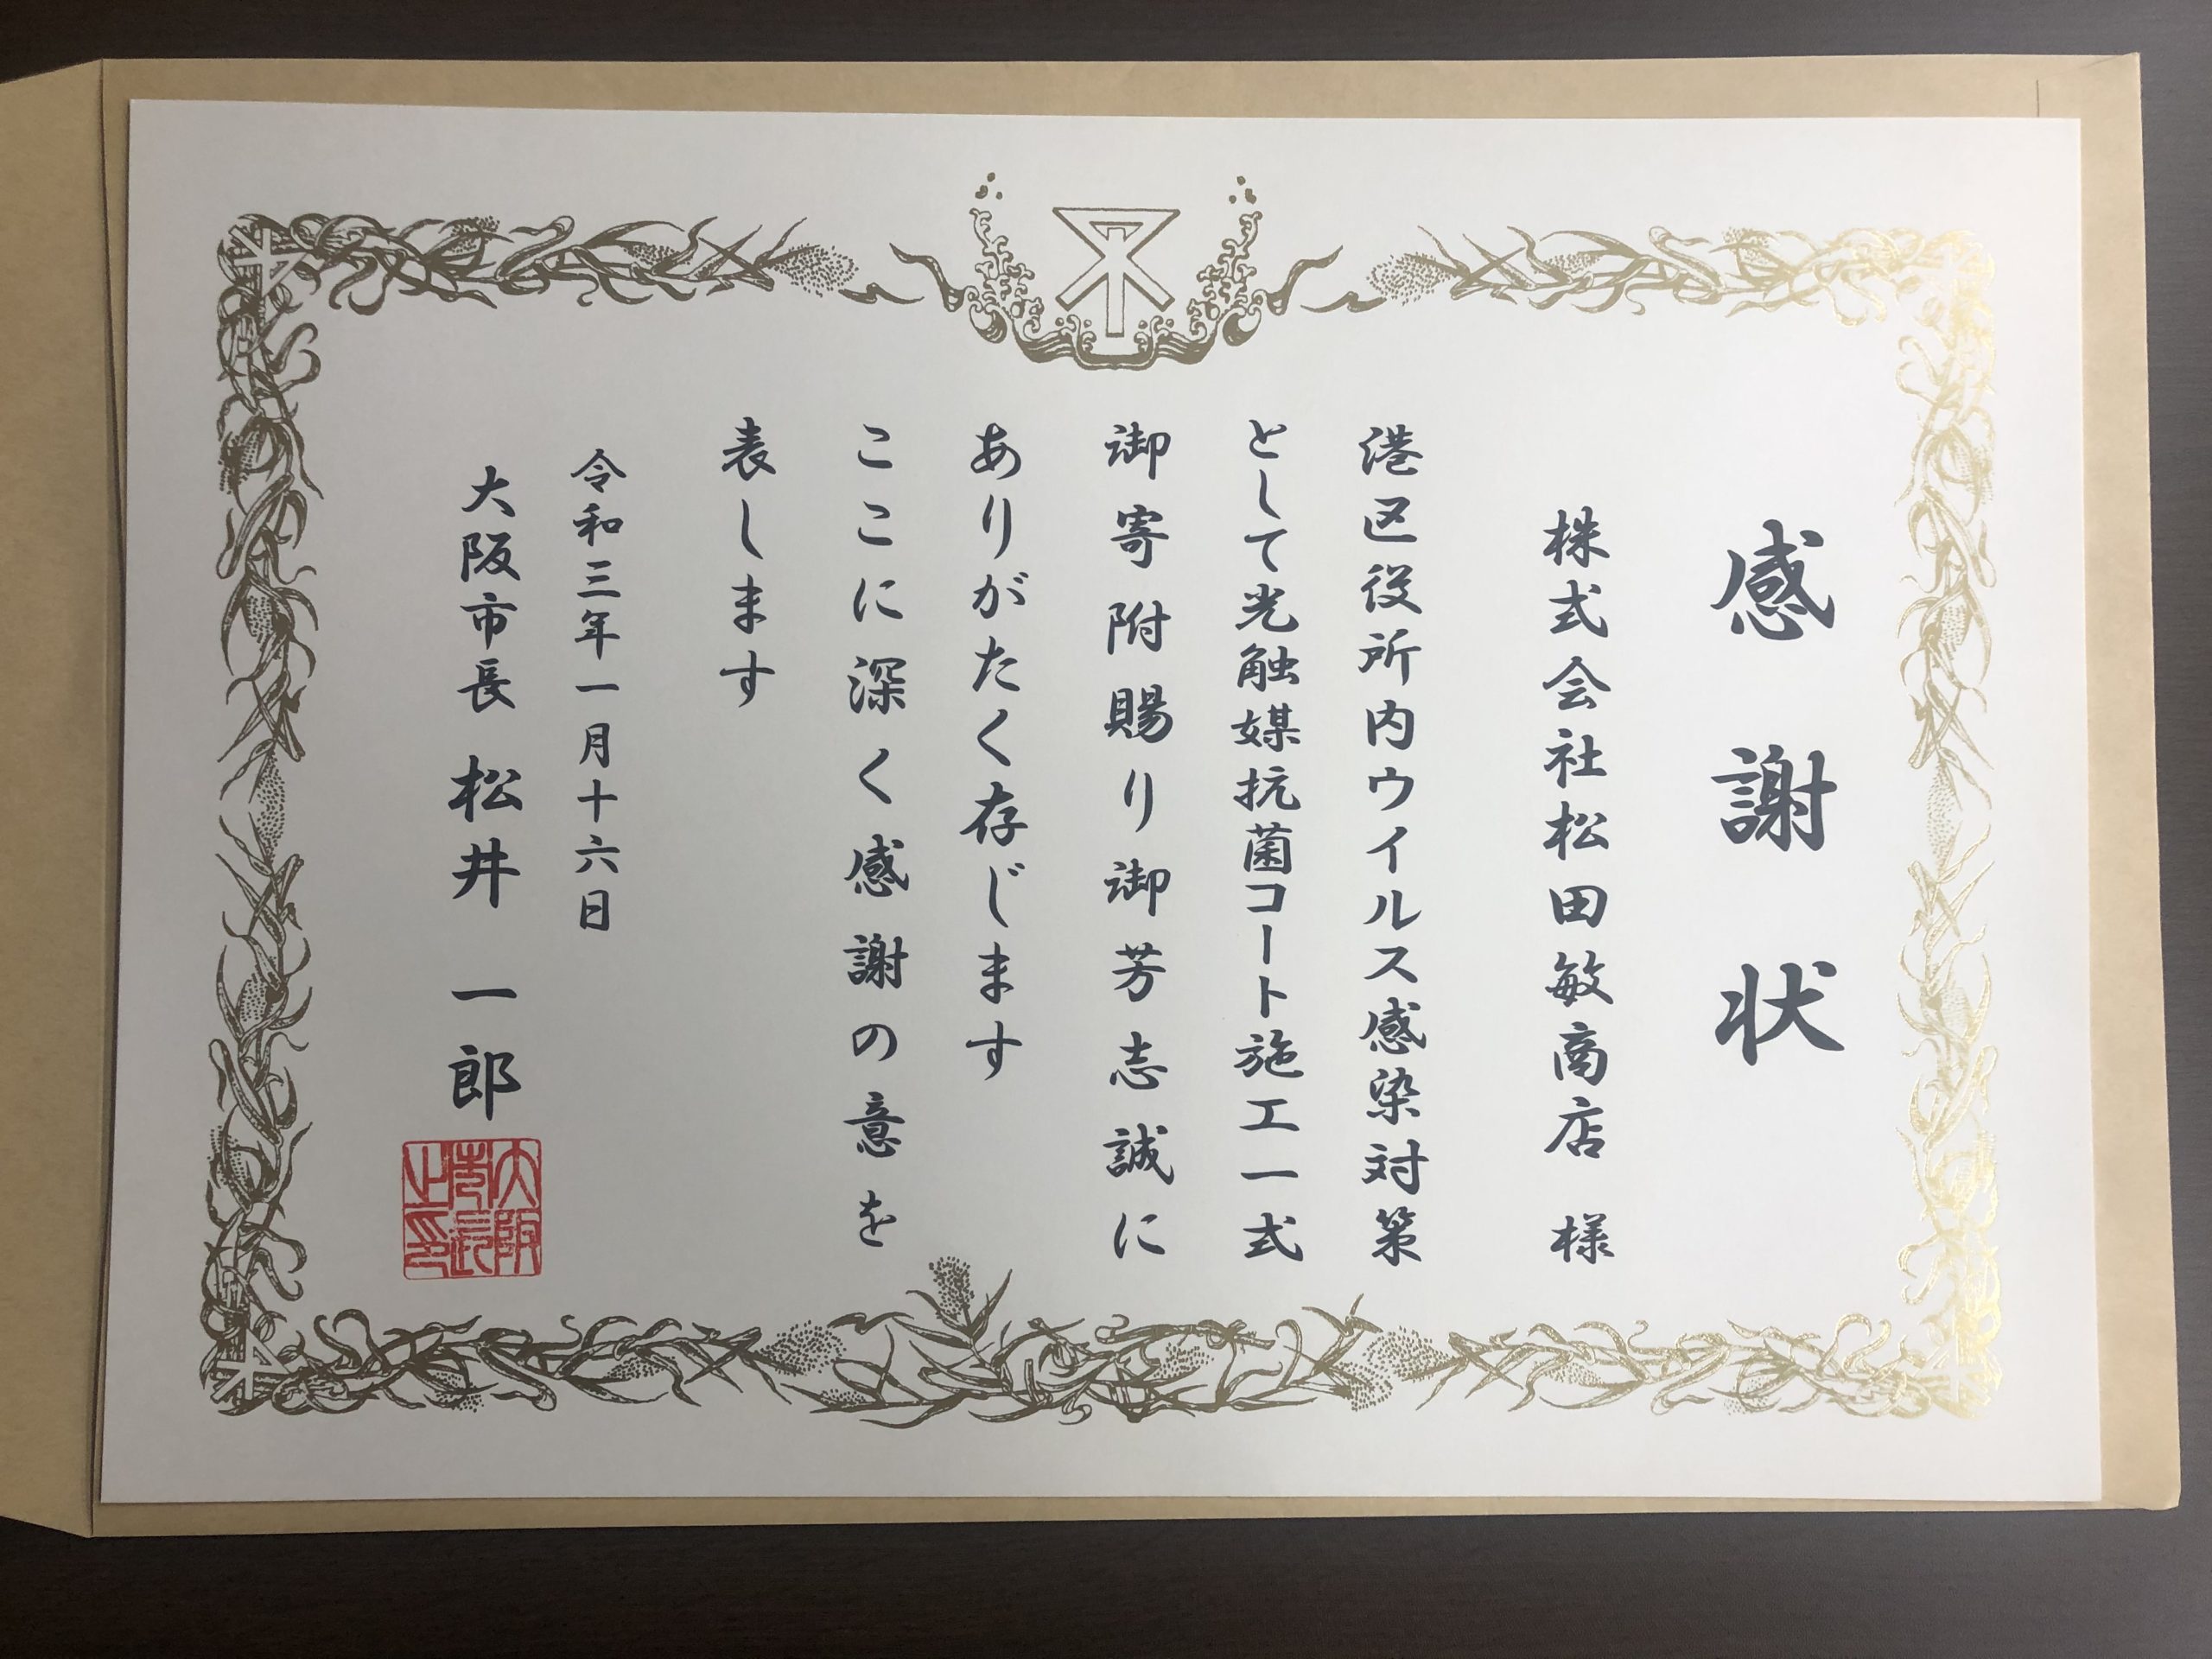 感謝状
株式会社松田敏商店 様
港区役所内ウイルス感染対策
として光触媒抗菌コート施工一式
御寄附賜り御芳志誠に
ありがたく存じます
ここに深く感謝の意を
表します
令和三年一月十六日
大阪市長 松井一郎
大阪市長之印